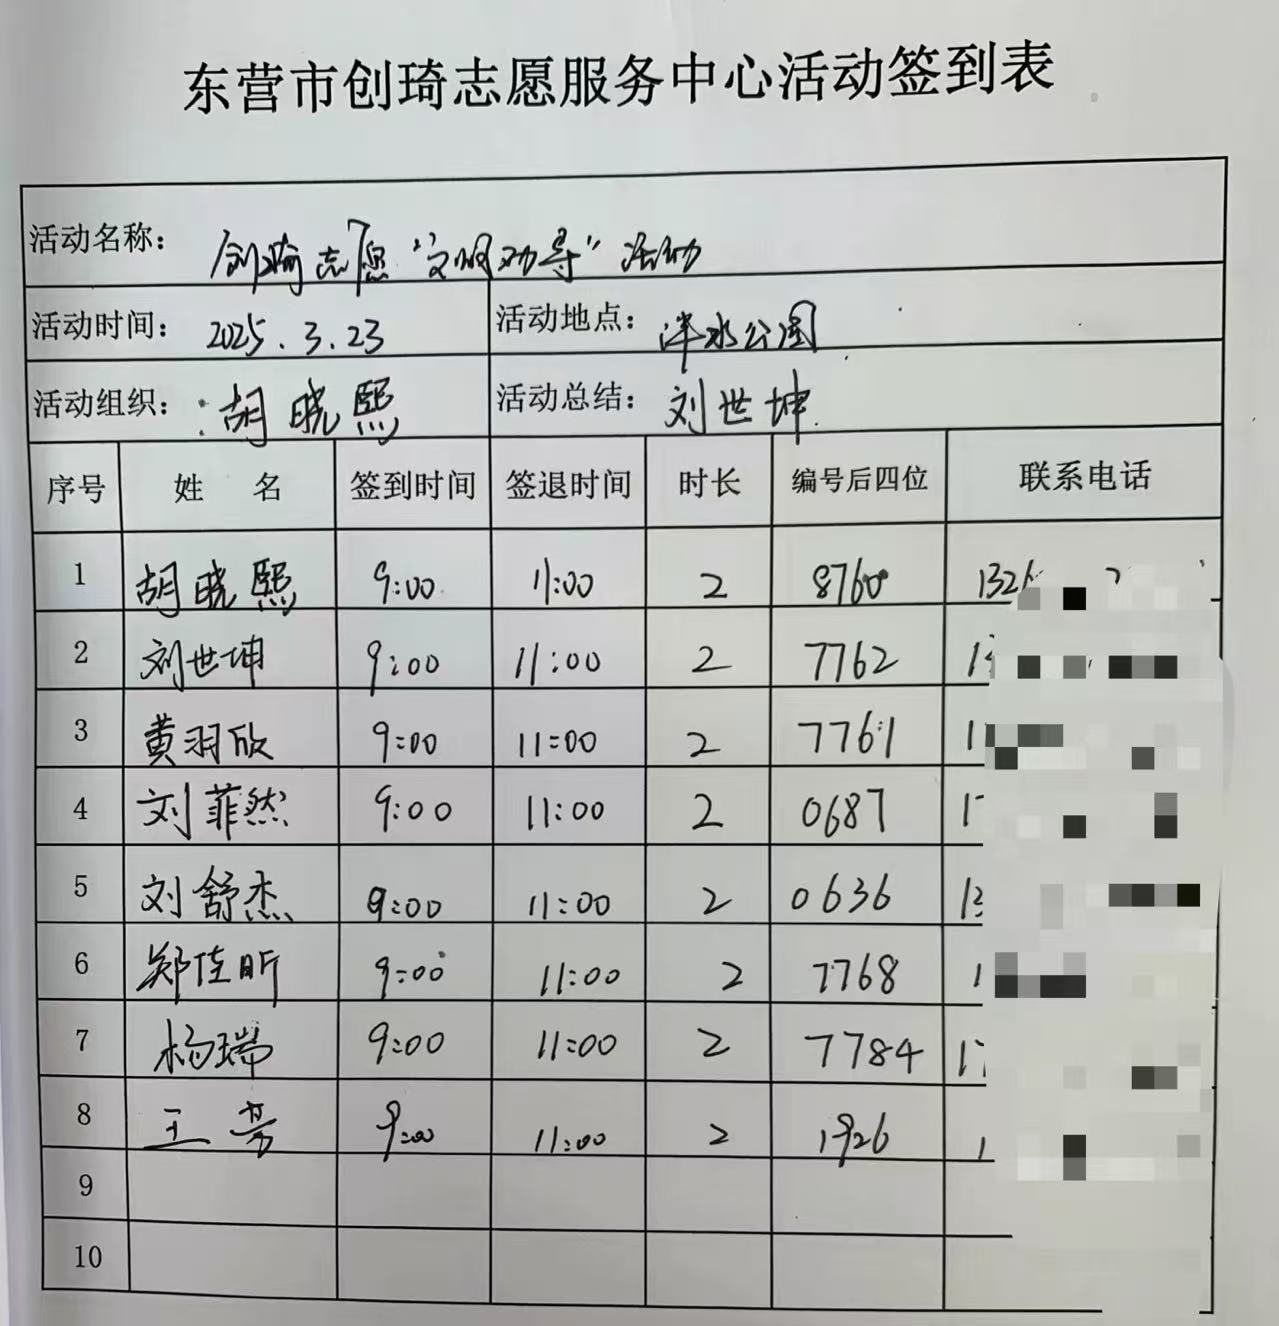 东营市创琦志愿服务中心活动签到表
活动名称： 创琦志愿“文明劝导”活动
活动时间： 2025.3.23 活动地点： 泮水公园
活动组织： 胡晓熙 活动总结： 刘世坤
序号 姓 名 签到时间 签退时间 时长 编号后四位 联系电话
1 胡晓熙 9:00 11:00 2 8760 1326
2 刘世坤 9:00 11:00 2 7762 1
3 黄羽欣 9:00 11:00 2 7761 1
4 刘菲然 9:00 11:00 2 0687 1
5 刘舒杰 9:00 11:00 2 0636 13
6 郑佳昕 9:00 11:00 2 7768 1
7 杨瑞 9:00 11:00 2 7784 17
8 王芳 9:00 11:00 2 1926 1
9
10